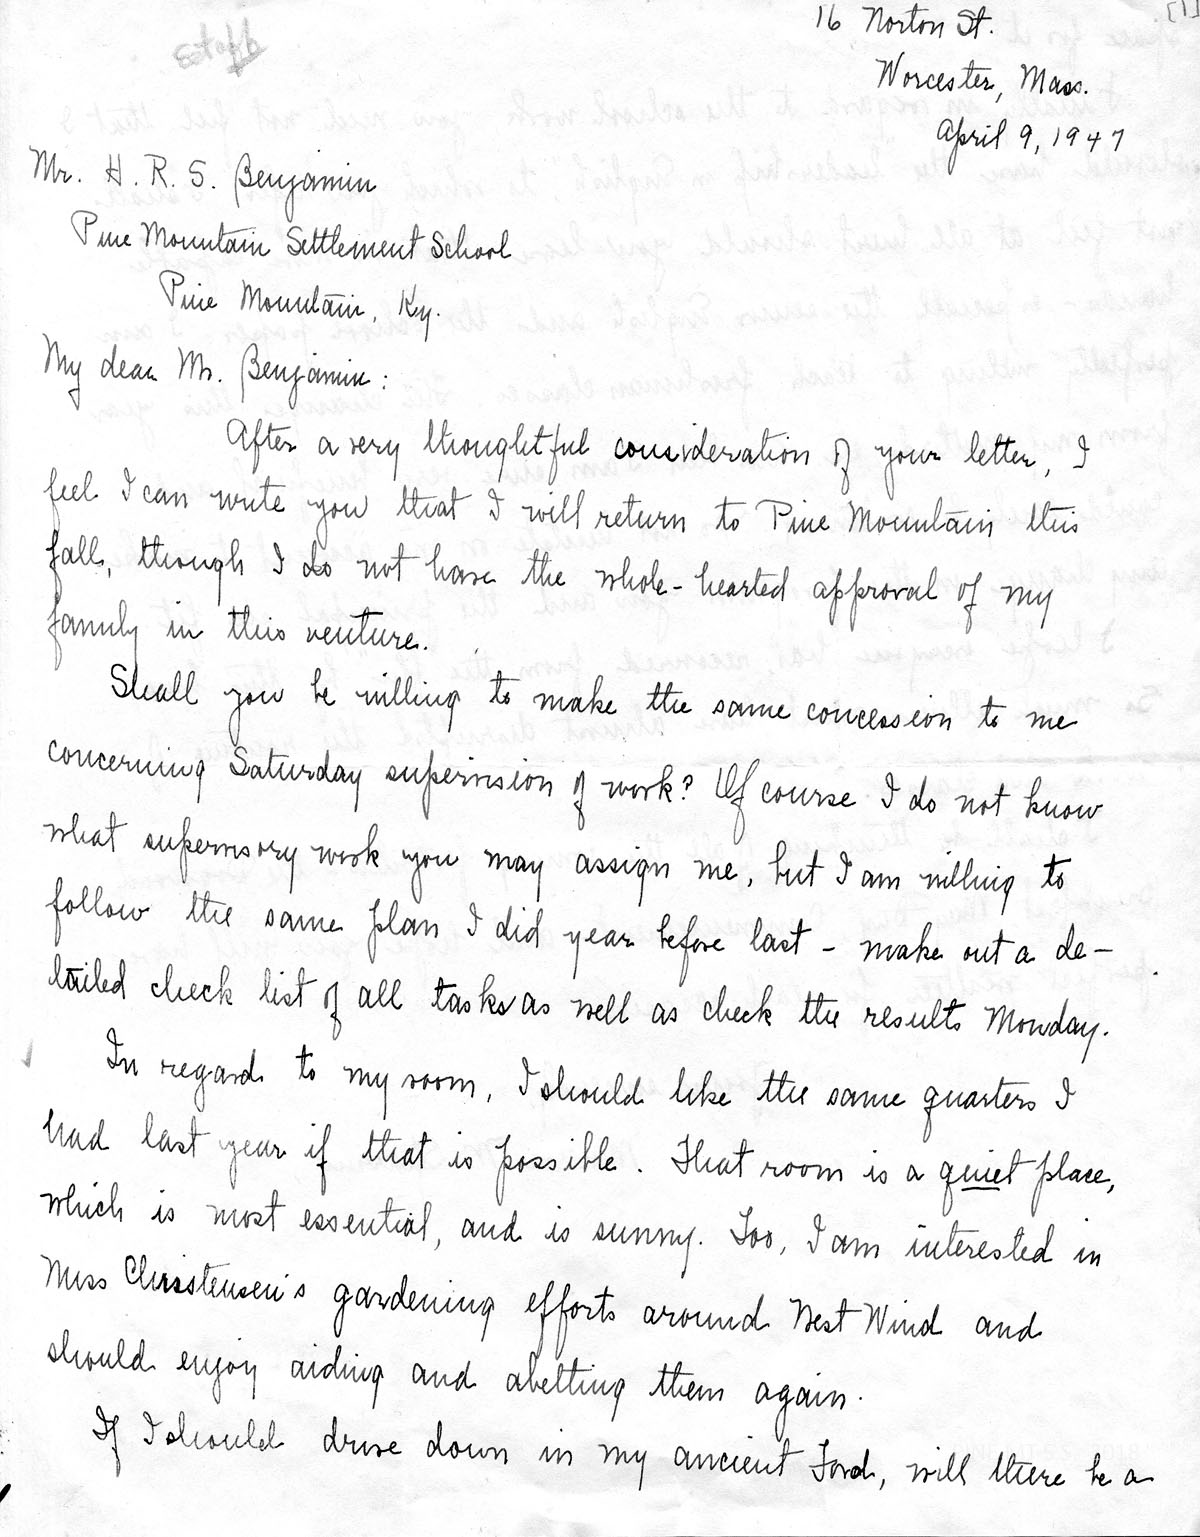 [1]
16 Norton St.
Worcester, Mass.
April 9, 1947
Mr. H. R. S. Benjamin
Pine Mountain Settlement School
Pine Mountain, Ky.
My dear Mr. Benjamin:
After a very thoughtful consideration of your letter, I
feel I can write you that I will return to Pine Mountain this
fall, though I do not have the whole-hearted approval of my
family in this venture.
Shall you be willing to make the same concession to me
concerning Saturday supervision of work? Of course I do not know
what supervisory work you may assign me, but I am willing to
follow the same plan I did year before last - make out a de-
tailed check list of all tasks as well as check the results Monday.
In regard to my room, I should like the same quarters I
had last year if that is possible. That room is a quiet place,
which is most essential, and is sunny. Too, I am interested in
Miss Christensen's gardening efforts around West Wind and
should enjoy aiding and abetting them again.
If I should drive down in my ancient Ford, will there be a